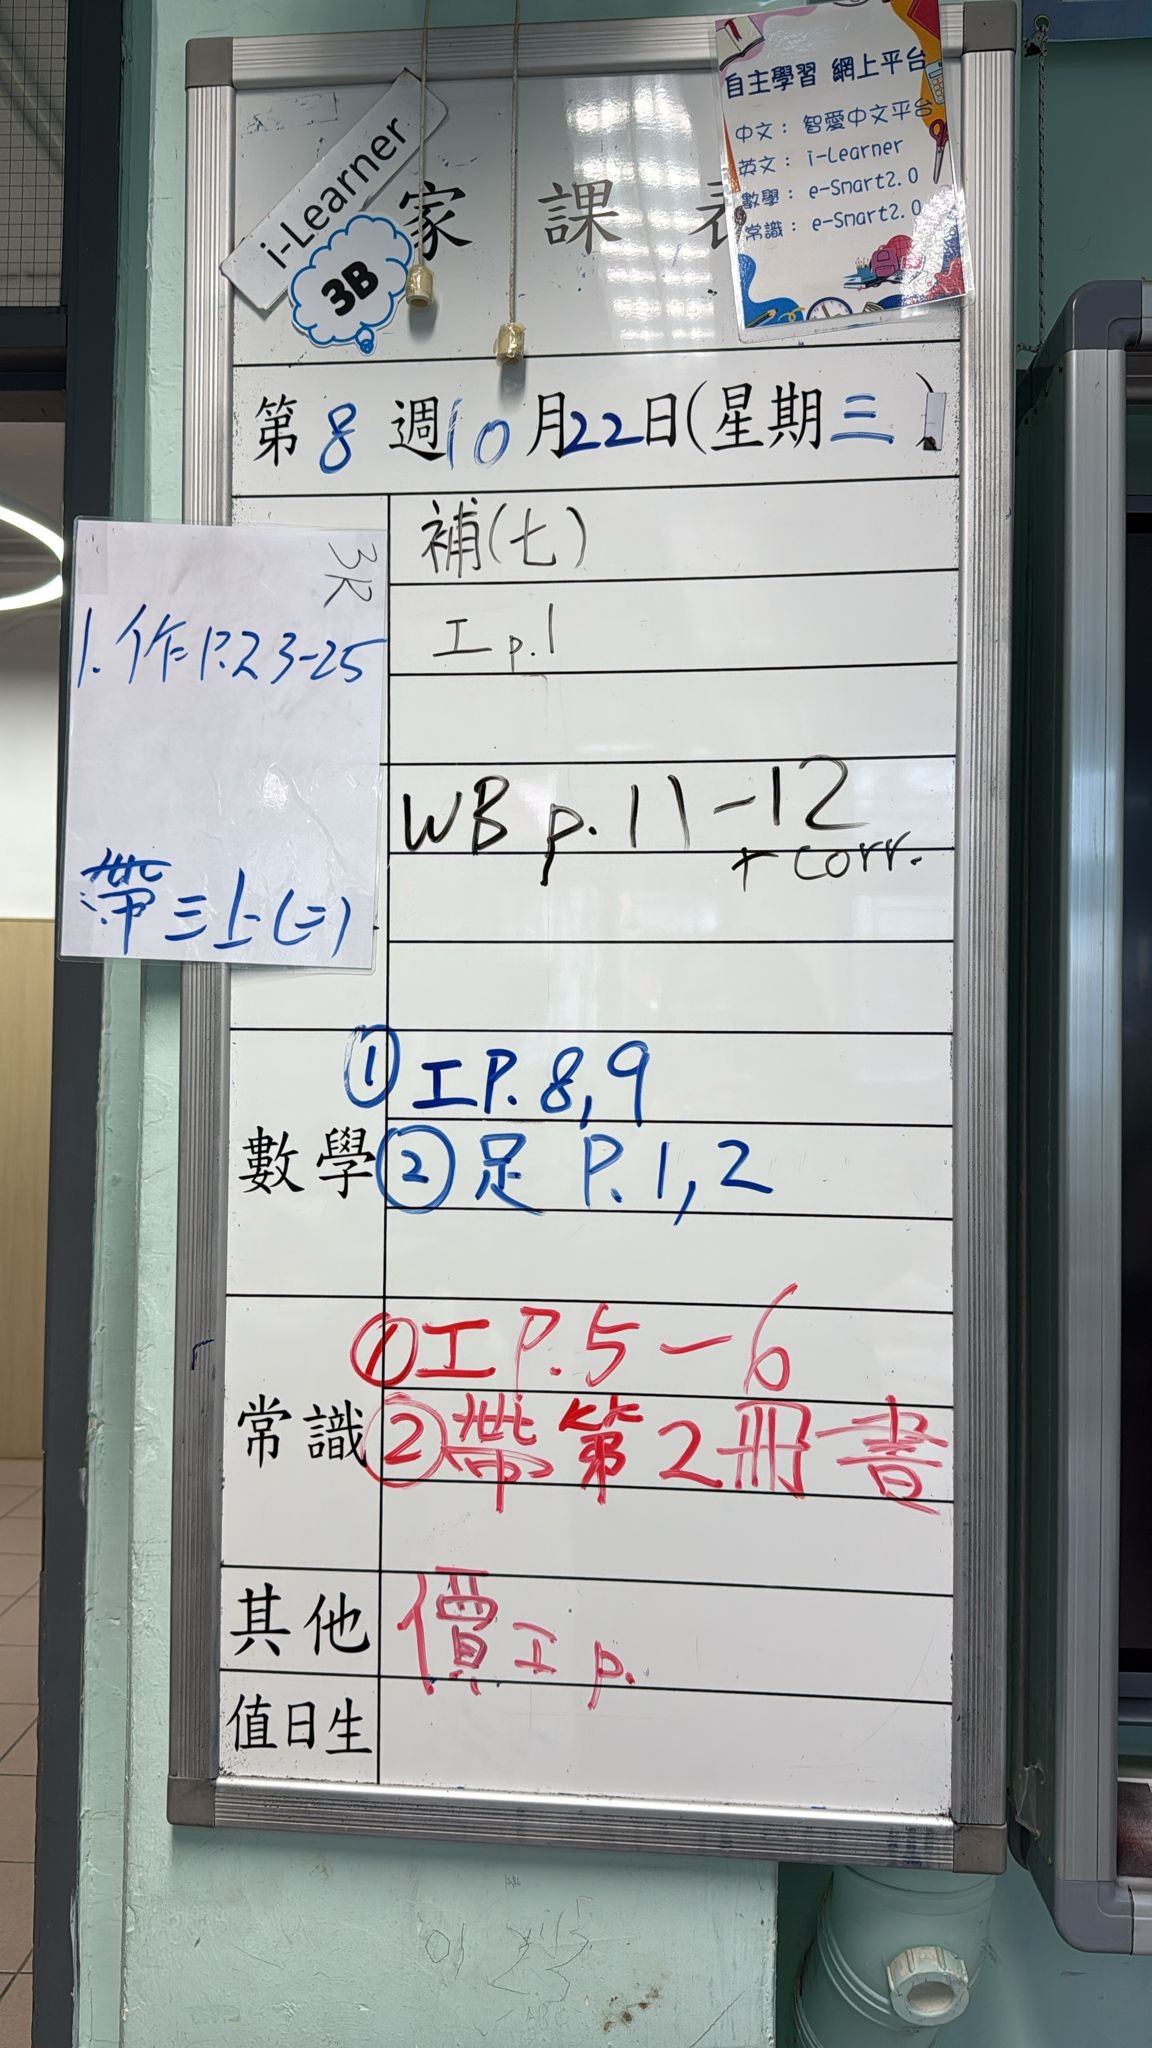 i-Learner
3B
家課表
自主學習 網上平台
中文：智愛中文平台
英文：i-Learner
數學：e-Smart2.0
常識：e-Smart2.0
第8週10月22日(星期三)
補(七)
工p.1
3R
1. 作P.23-25
帶三上(二)
WB p.11-12
+ corr.
數學
①工P.8,9
②足 P.1,2
常識
①工P.5-6
②帶第2冊書
其他
價工p.
值日生